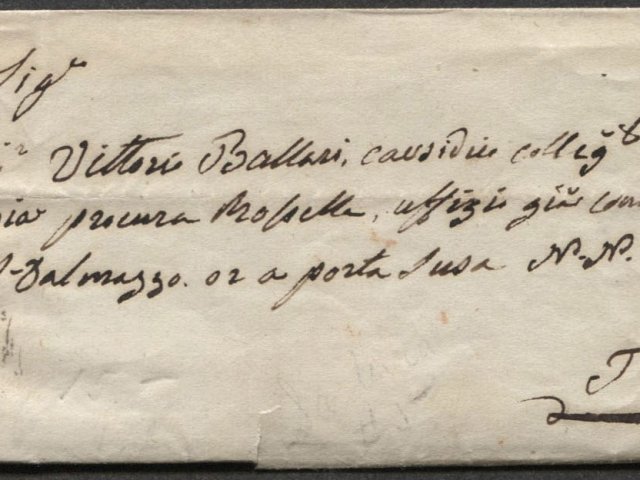 Sig.r
Vittorio Ballari, causidico colleg.o
già procura Rossetta, uffizio già
Dalmazzo. or a porta Susa N. N.
T